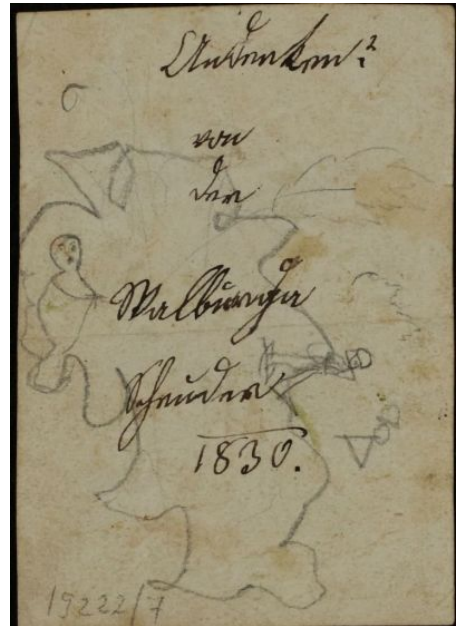 Andenken
von
der
Walburga
Schruder
1830.
19222/7